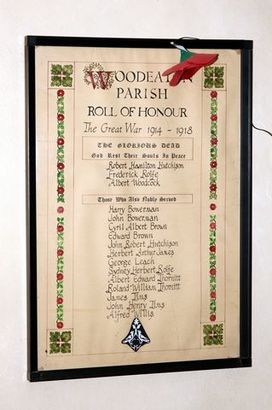 WOODEATON
PARISH
ROLL OF HONOUR
The Great War 1914 - 1918
THE GLORIOUS DEAD
God Rest Their Souls In Peace
Robert Hamilton Hutchison
Frederick Rolfe
Albert Woodcock
Those Who Also Nobly Served
Harry Bowerman
John Bowerman
Cyril Albert Brown
Edward Brown
John Robert Hutchison
Herbert Arthur James
George Leach
Sydney Herbert Rolfe
Albert Edward
Roland William
James
John Henry
Alfred Willis